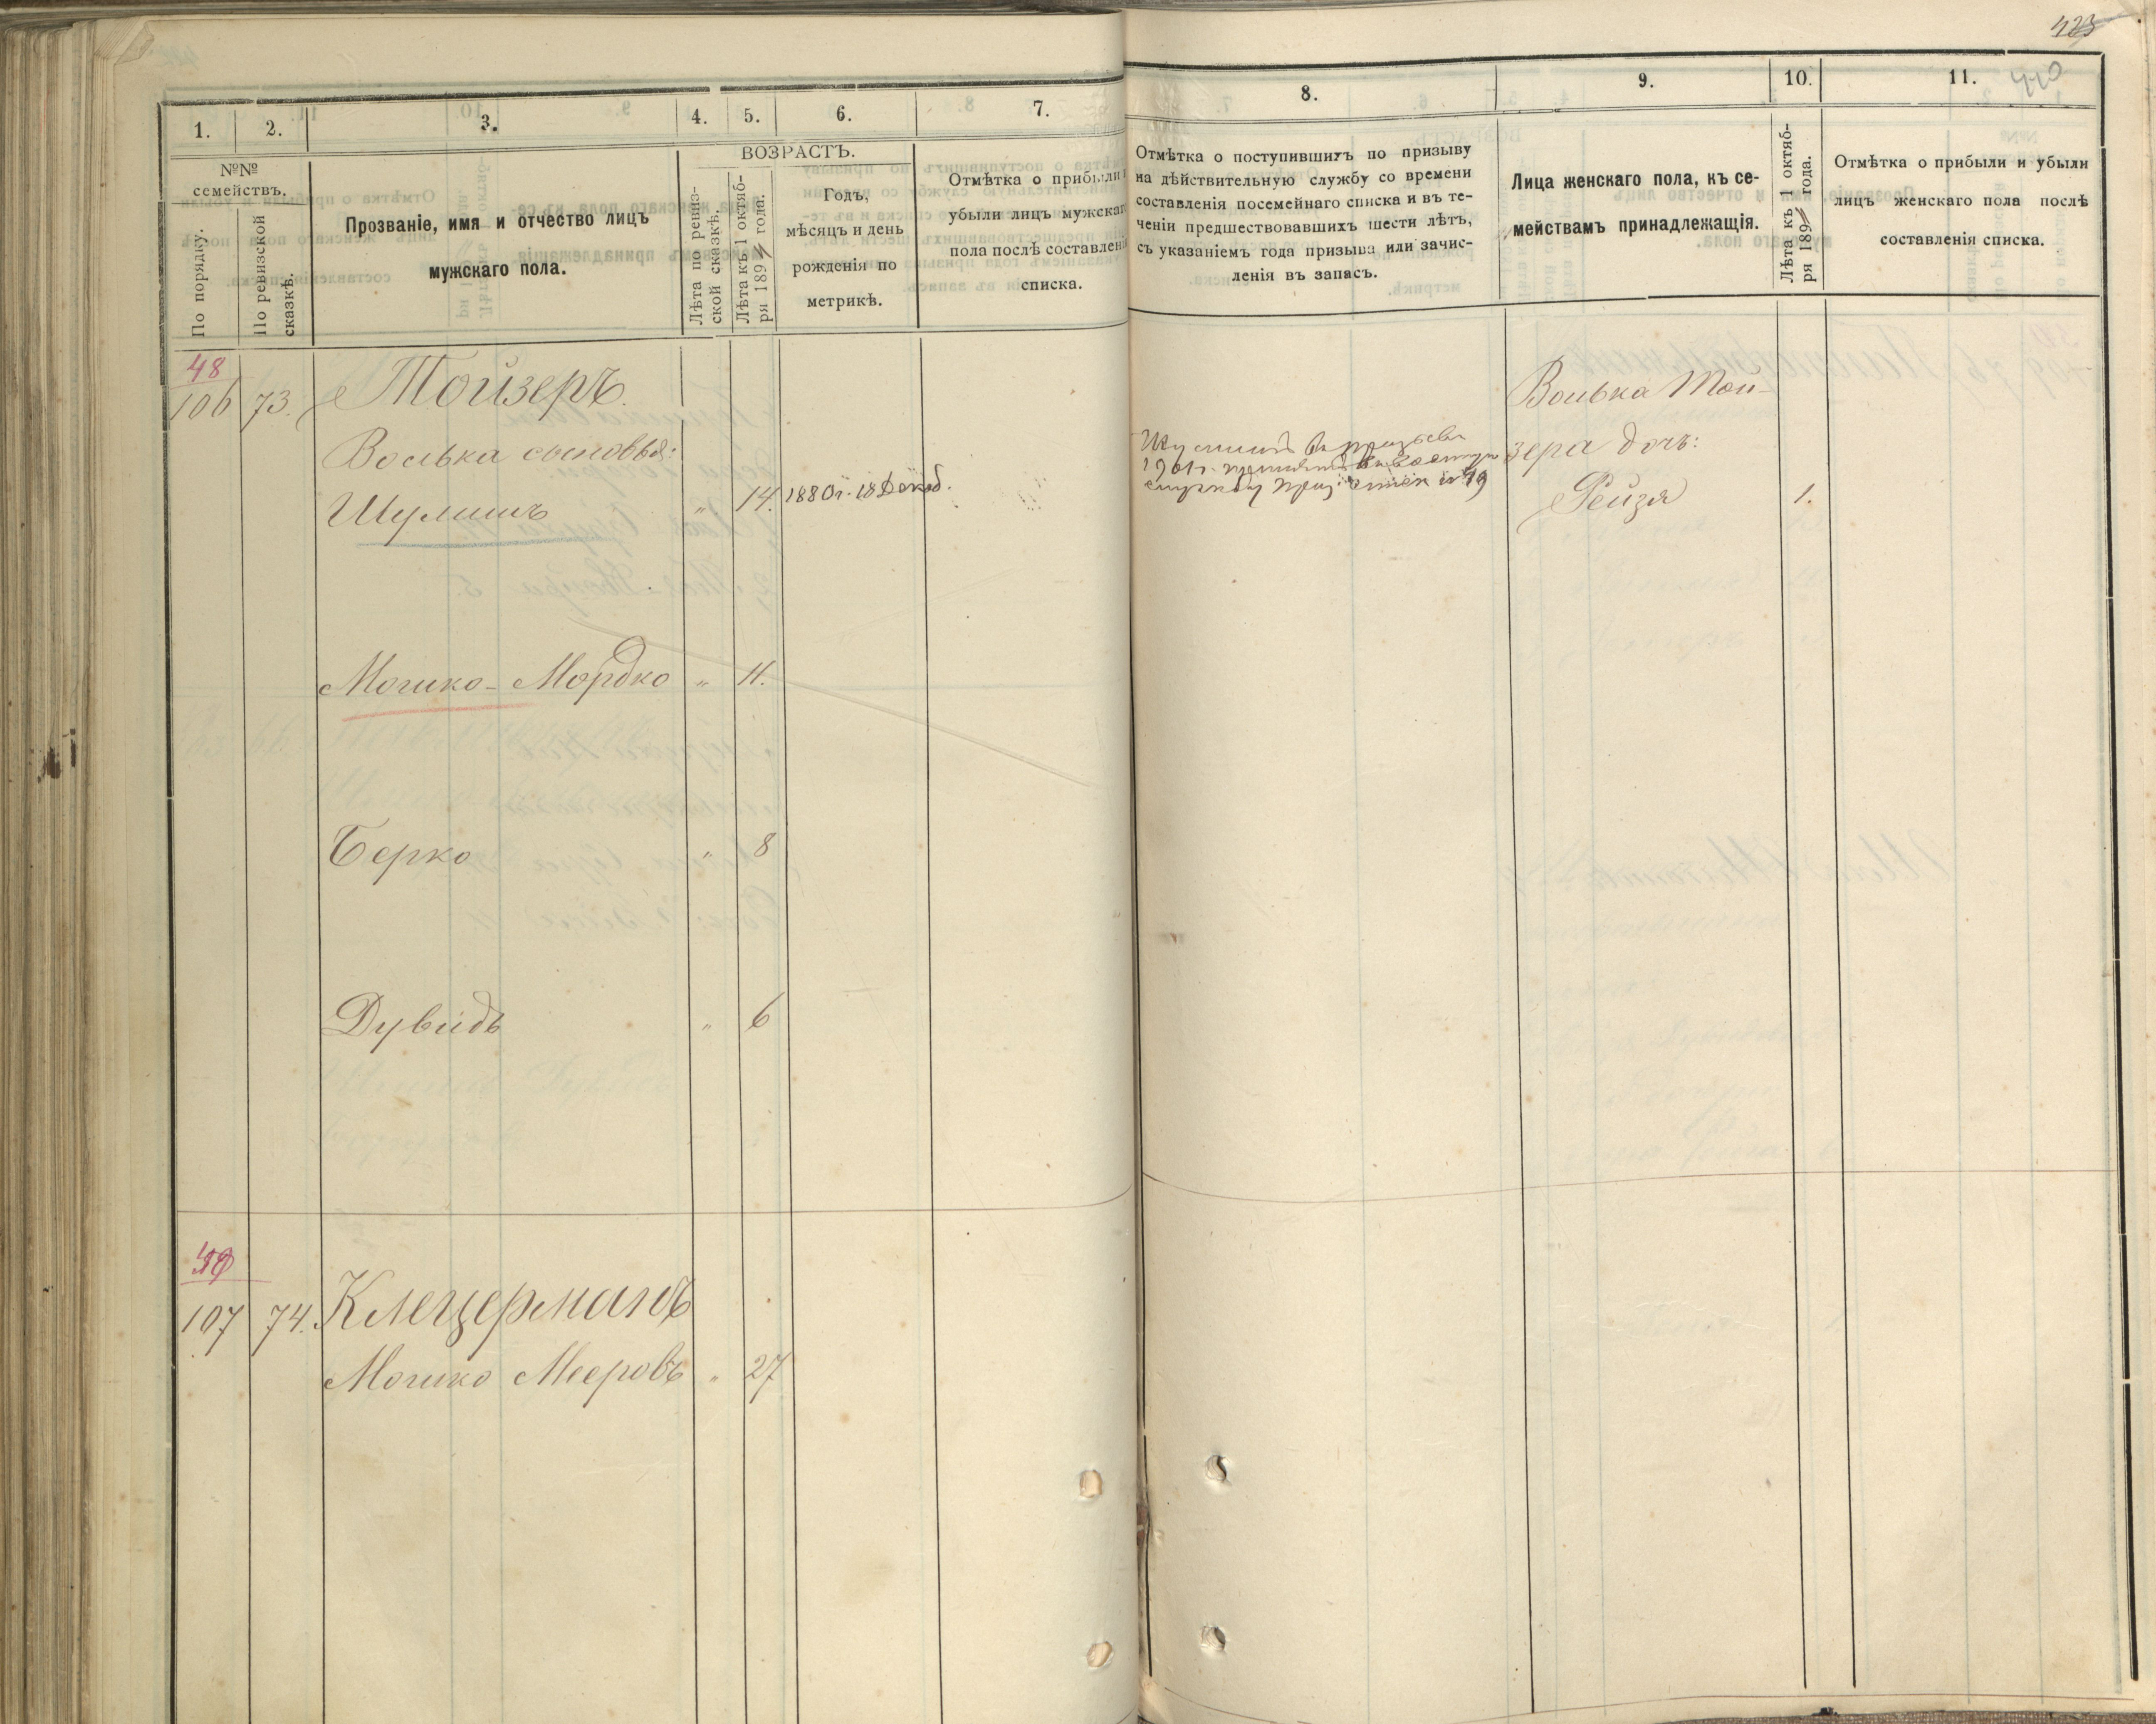 423
410
1.
2.
3.
4.
5.
6.
7.
8.
9.
10.
11.
№№ семействъ.
По порядку.
По ревизской сказкѣ.
Прозваніе, имя и отчество лицъ
мужскаго пола.
ВОЗРАСТЪ.
Лѣта по ревиз-
ской сказкѣ.
Лѣта къ 1 октяб-
ря 189 года.
Годъ,
мѣсяцъ и день
рожденія по
метрикѣ.
Отмѣтка о прибыли и
убыли лицъ мужскаго
пола послѣ составленія
списка.
Отмѣтка о поступившихъ по призыву
на дѣйствительную службу со времени
составленія посемейнаго списка и въ те-
ченіи предшествовавшихъ шести лѣтъ,
съ указаніемъ года призыва или зачис-
ленія въ запасъ.
Лица женскаго пола, къ се-
мействамъ принадлежащія.
Лѣта къ 1 октяб-
ря 189 года.
Отмѣтка о прибыли и убыли
лицъ женскаго пола послѣ
составленія списка.
48
106 73. Тойзеръ
Волька сыновья:
Шулимъ " 14. 1880 г. 18 Декаб.
Шулимъ въ призывъ
1901 г. принятъ въ военную
службу
Волька Той-
зера дочь:
Рейзя 1.
Мошко-Мордко " 11.
Берко " 8
Дувидъ " 6
49
107 74. Клецерманъ
Мошко Мееровъ " 27